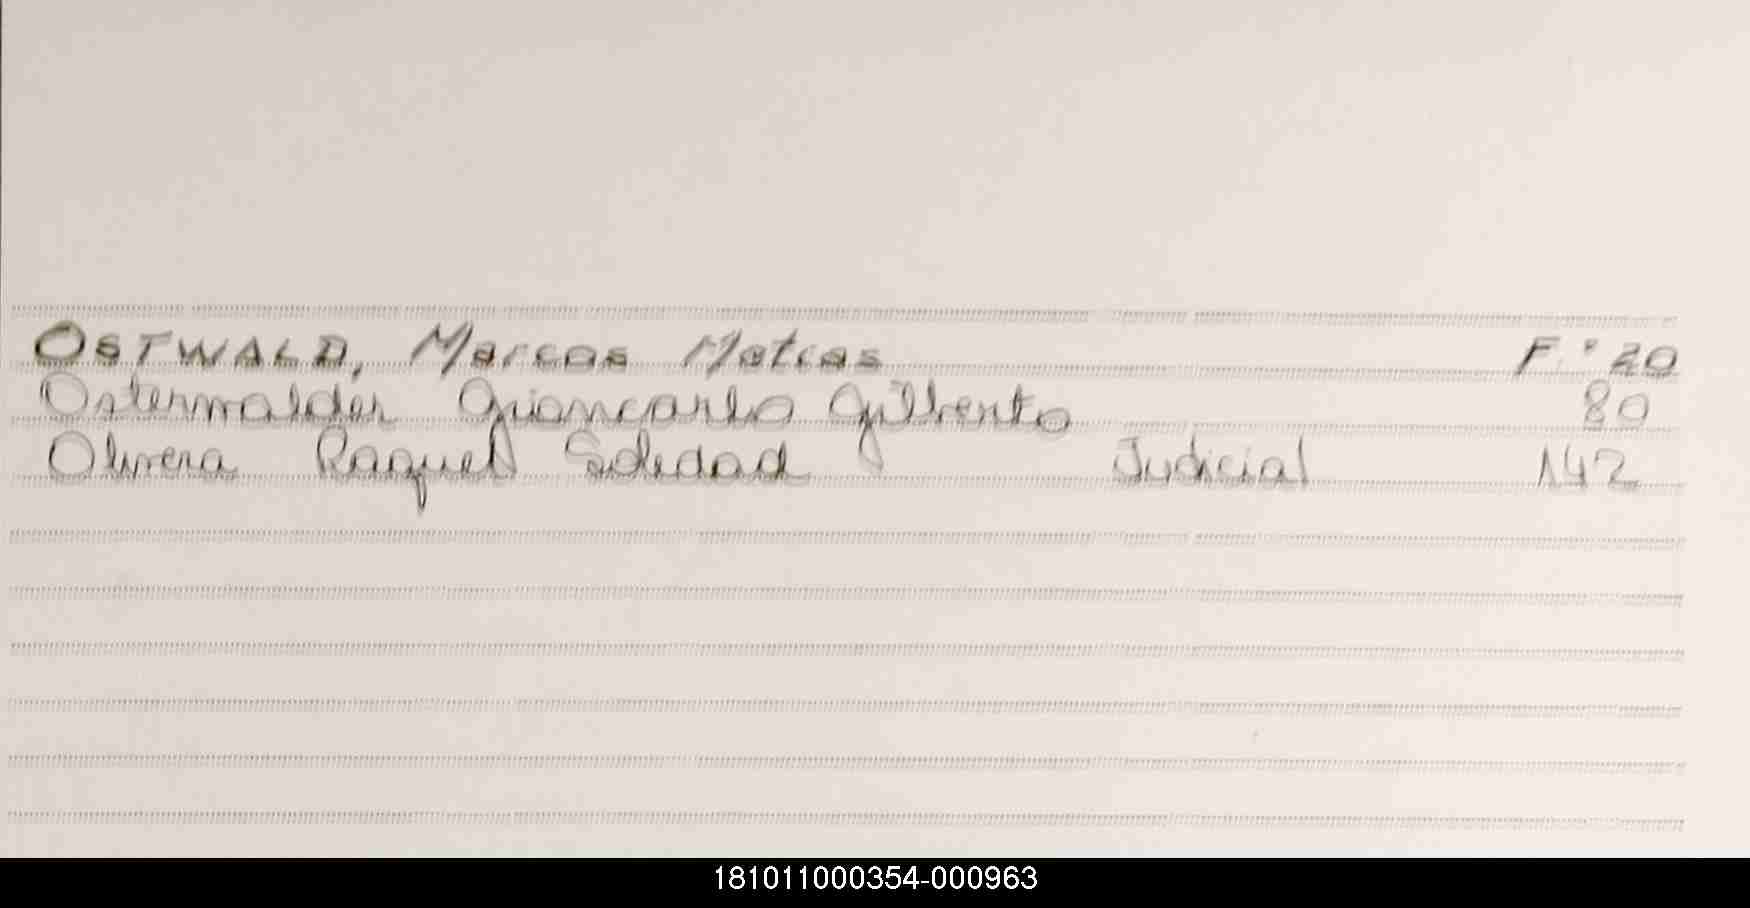 OSTWALD, Marcos Matias F.º 20
Osterwalder Giancarlo Gilberto 80
Olivera Raquel Soledad Judicial 142
181011000354-000963